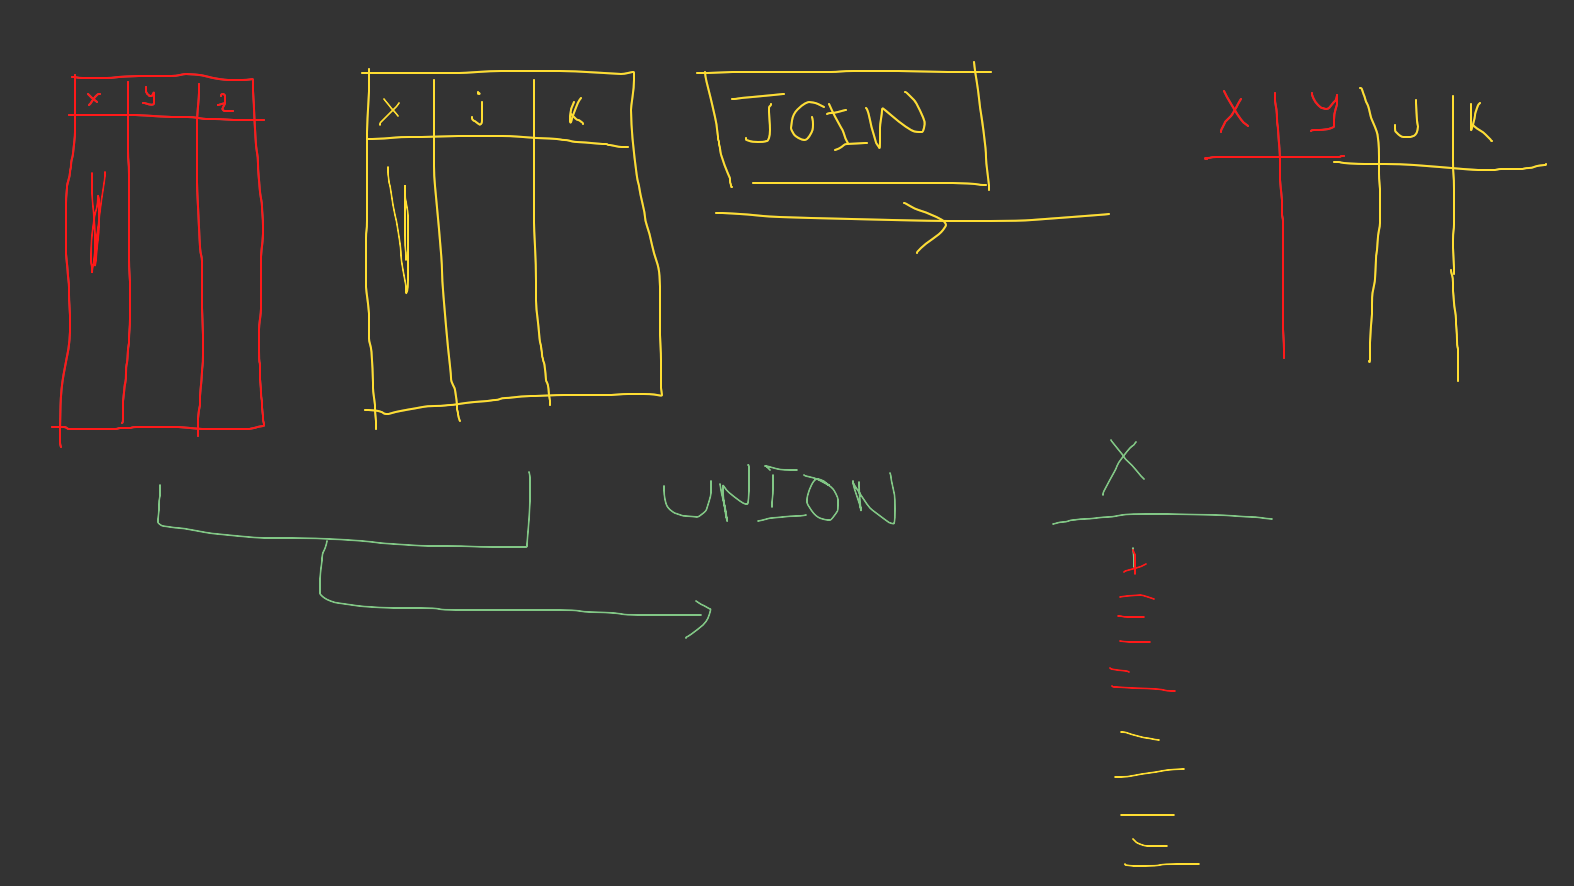 x y z
x j K
JOIN
X y J K
UNION
X